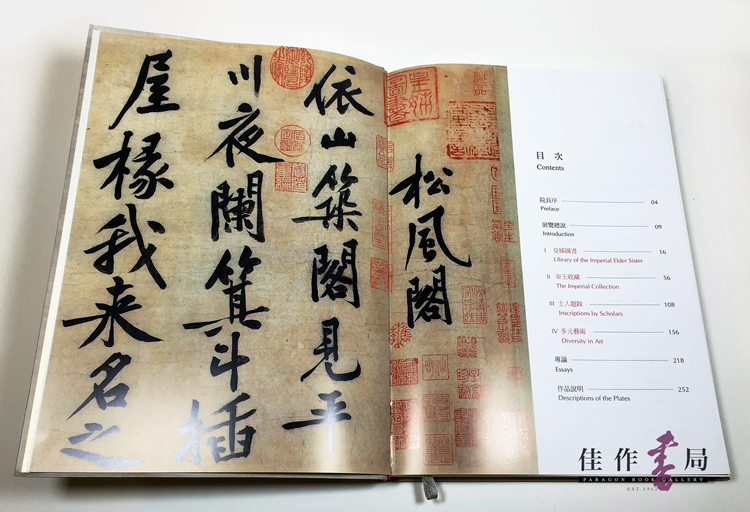 松風閣
依山築閣見平
川夜闌箕斗插
屋椽我来名之
皇姊圖書
目次
Contents
院長序 04
Preface
展覽總說 09
Introduction
I 皇姊圖書 16
Library of the Imperial Elder Sister
II 帝王收藏 56
The Imperial Collection
III 士人題跋 108
Inscriptions by Scholars
IV 多元藝術 156
Diversity in Art
專論 218
Essays
作品說明 252
Descriptions of the Plates
佳作書局
PARAGON BOOK GALLERY
EST. 1942